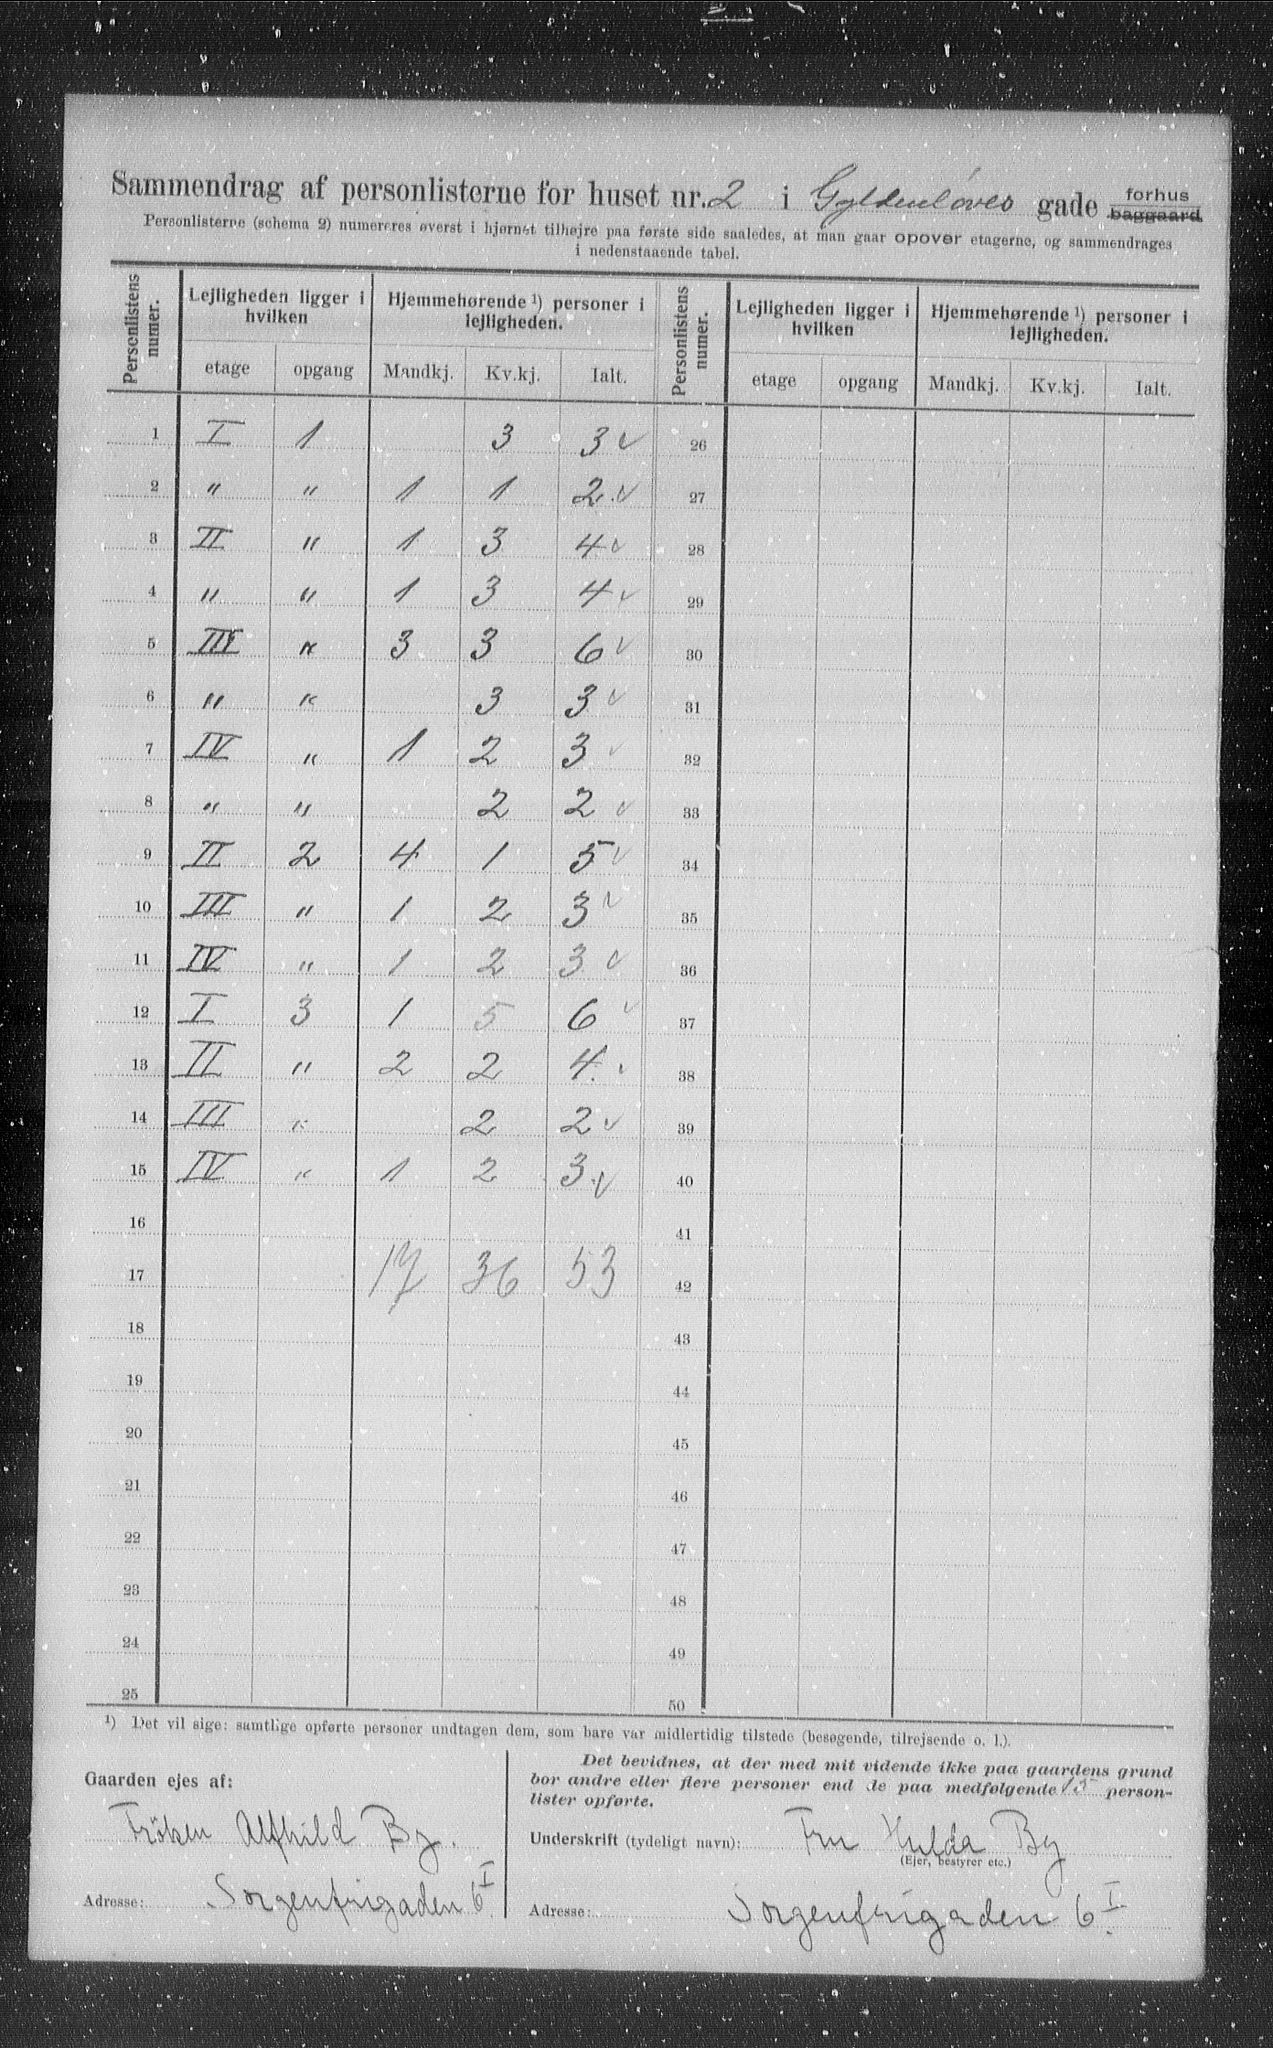 Sammendrag af personlisterne for huset nr. 2 i Gyldenløves gade forhus baggaard
Personlisterne (schema 2) numereres øverst i hjørnet tilhøjre paa første side saaledes, at man gaar opover etagerne, og sammendrages
i nedenstaaende tabel.
Personlistens numer. Lejligheden ligger i hvilken Hjemmehørende ¹) personer i lejligheden. Personlistens numer. Lejligheden ligger i hvilken Hjemmehørende ¹) personer i lejligheden.
etage opgang Mandkj. Kv.kj. Ialt. etage opgang Mandkj. Kv.kj. Ialt.
1 I 1 3 3 ✓ 26
2 " " 1 1 2 ✓ 27
3 II " 1 3 4 ✓ 28
4 " " 1 3 4 ✓ 29
5 III " 3 3 6 ✓ 30
6 " " 3 3 ✓ 31
7 IV " 1 2 3 ✓ 32
8 " " 2 2 ✓ 33
9 II 2 4 1 5 ✓ 34
10 III " 1 2 3 ✓ 35
11 IV " 1 2 3 ✓ 36
12 I 3 1 5 6 ✓ 37
13 II " 2 2 4 ✓ 38
14 III " 2 2 ✓ 39
15 IV " 1 2 3 ✓ 40
16 41
17 17 36 53 42
18 43
19 44
20 45
21 46
22 47
23 48
24 49
25 50
¹) Det vil sige: samtlige opførte personer undtagen dem, som bare var midlertidig tilstede (besøgende, tilrejsende o. l.).
Gaarden ejes af:
Fröken Alfhild By.
Adresse: Sorgenfrigaden 6 I
Det bevidnes, at der med mit vidende ikke paa gaardens grund
bor andre eller flere personer end de paa medfølgende 15 person-
lister opførte.
Underskrift (tydeligt navn): Fru Hulda By
(Ejer, bestyrer etc.)
Adresse: Sorgenfrigaden 6 I